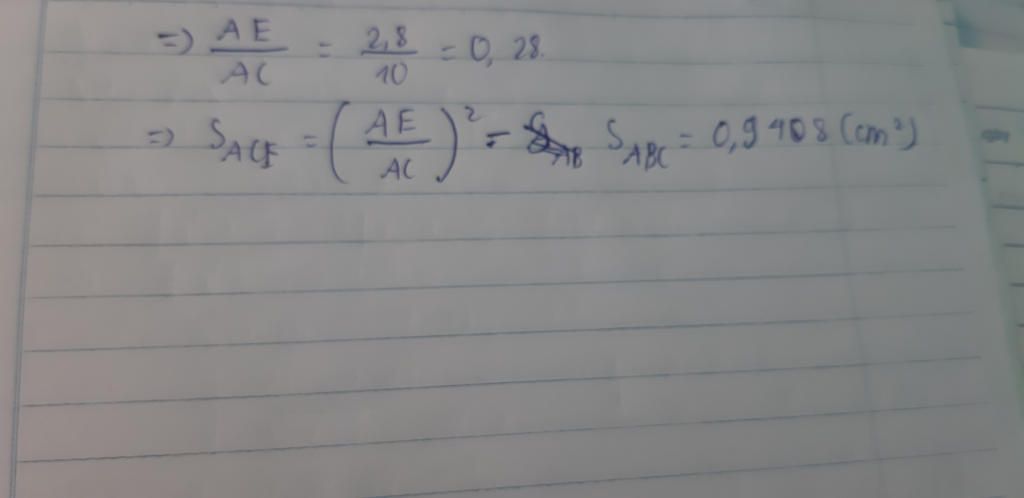 => AE/AC = 2,8/10 = 0,28.
=> S_ACE = (AE/AC)² = S_ABC = 0,9408 (cm²)